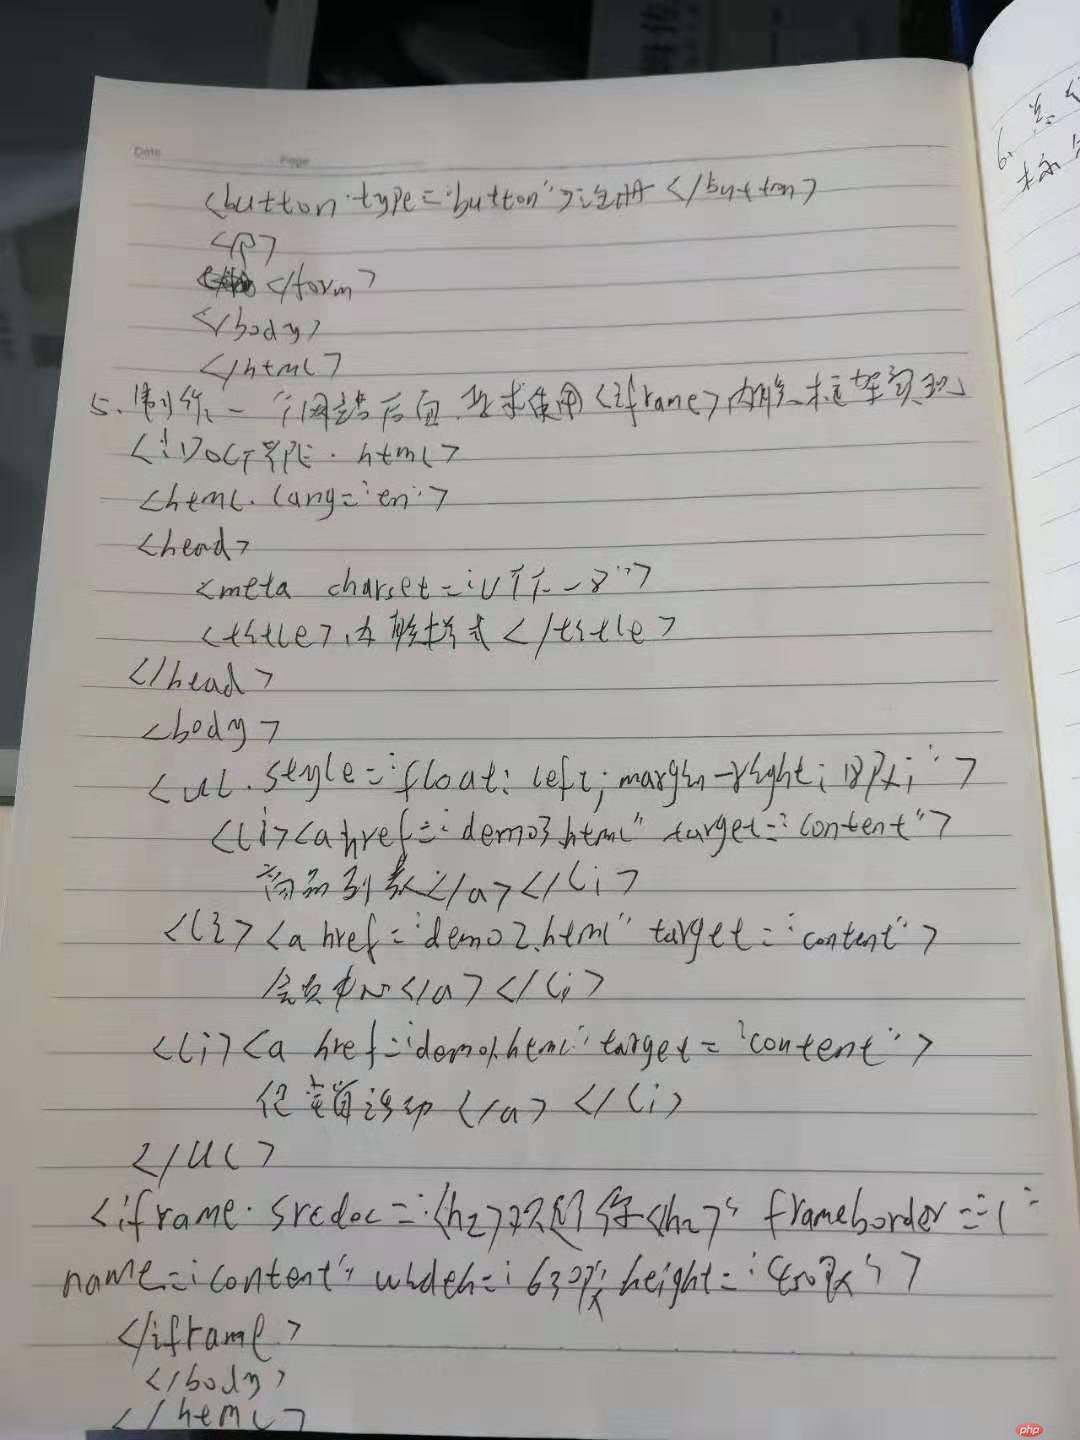 Date Page
<button type="button">注册</button>
<p>
</form>
</body>
</html>
5. 制作一个网站后台,要求使用<iframe>内联框架实现
<!DOCTYPE html>
<html lang="en">
<head>
<meta charset="UTF-8">
<title>内联样式</title>
</head>
<body>
<ul style="float:left;margin-right:18px;">
<li><a href="demo3.html" target="content">
商品列表</a></li>
<li><a href="demo2.html" target="content">
会员中心</a></li>
<li><a href="demo1.html" target="content">
促销活动</a></li>
</ul>
<iframe srcdoc="<h2>欢迎你<h2>" frameborder="1"
name="content" width="630px" height="450px">
</iframe>
</body>
</html>
6.
php